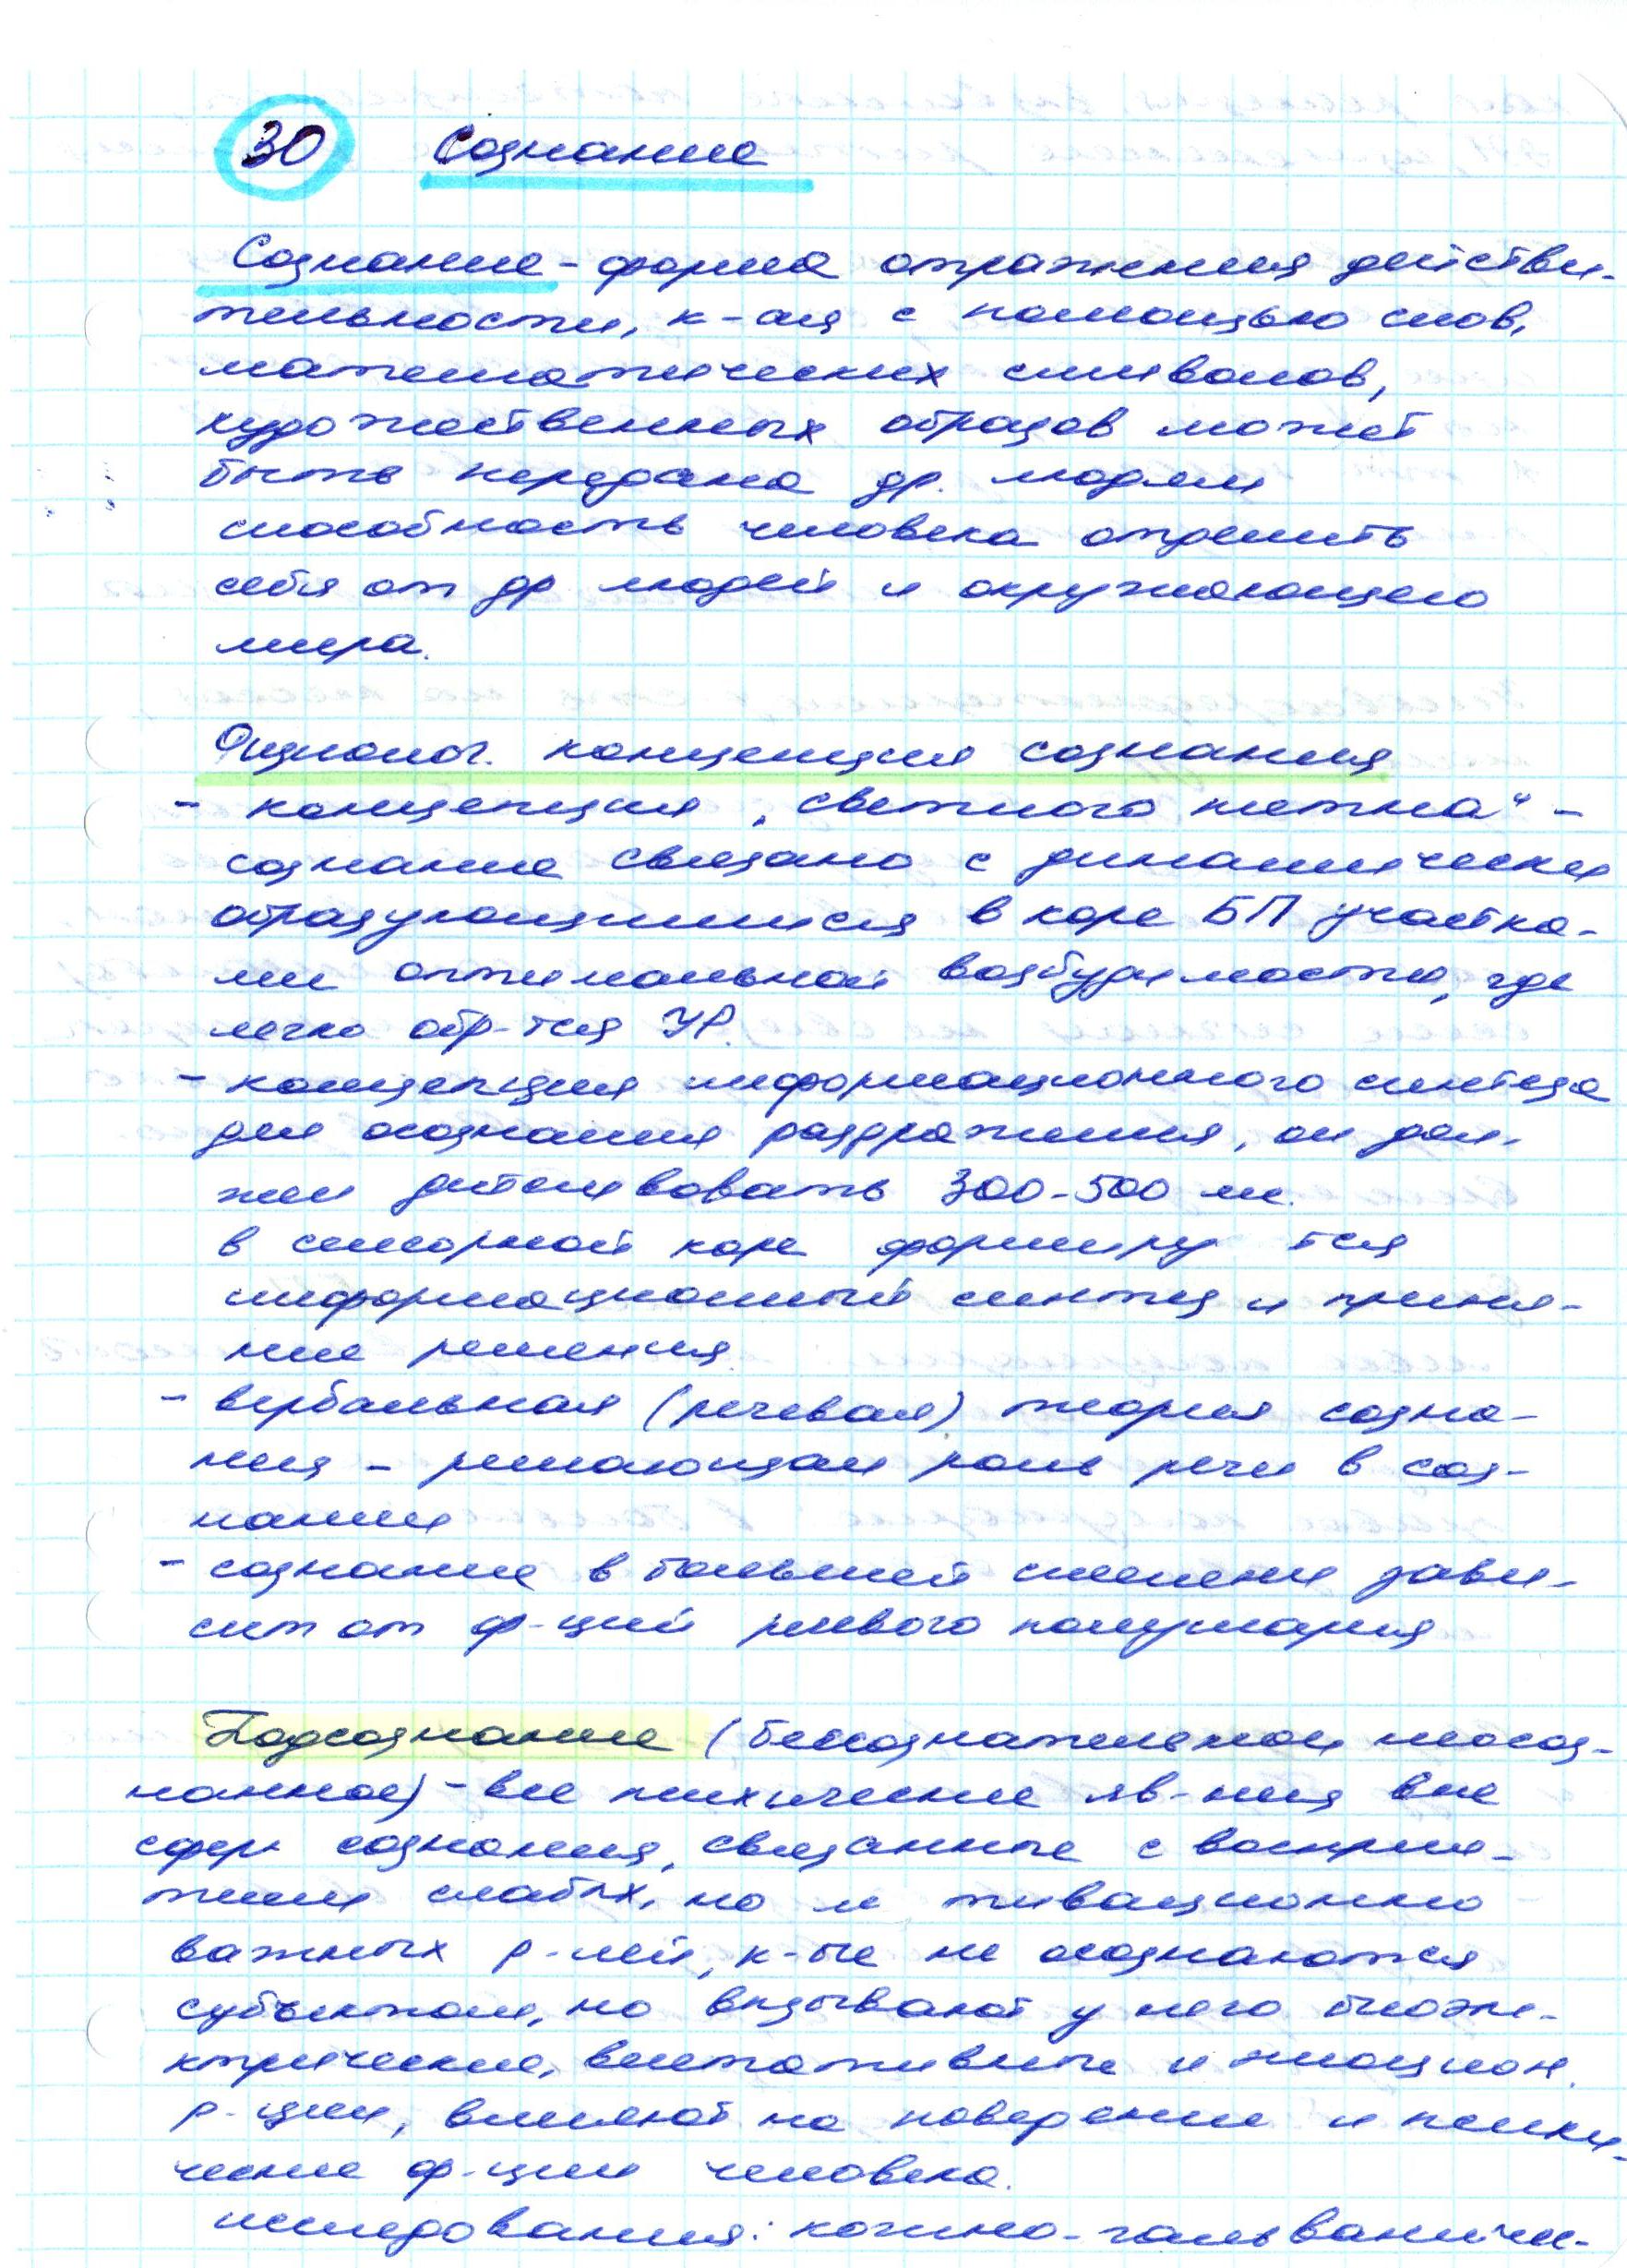 30 Сознание
Сознание - форма отражения действи-
тельности, к-ая с помощью слов,
математических символов,
художественных образов может
быть передана др. людям
способность человека отделить
себя от др людей и окружающего
мира.
Физиолог. концепция сознания
- концепция „светлого пятна" -
сознание связано с динамически
образующимися в коре БП участка-
ми оптимальной возбудимости, где
легко обр-тся УР.
- концепция информационного синтеза
для осознания раздражения, он дол-
жен действовать 300-500 мс.
в сенсорной коре формиру тся
информационный синтез и приня-
тие решения
- вербальная (речевая) теория созна-
ния - решающая роль речи в соз-
нании
- сознание в большей степени зави-
сит от ф-ций левого полушария
Подсознание (бессознательное неосоз-
нанное) - все психические яв-ния вне
сферы сознания, связанные с восприя-
тием слабых, но м тивационно
важных р-лей, к-ые не осознаются
субъектом, но вызывают у него биоэле-
ктрические, вегетативные и эмоцион.
р-ции, влияют на поведение и психи-
ческие ф-ции человека.
исследования: кожно-гальваниче-